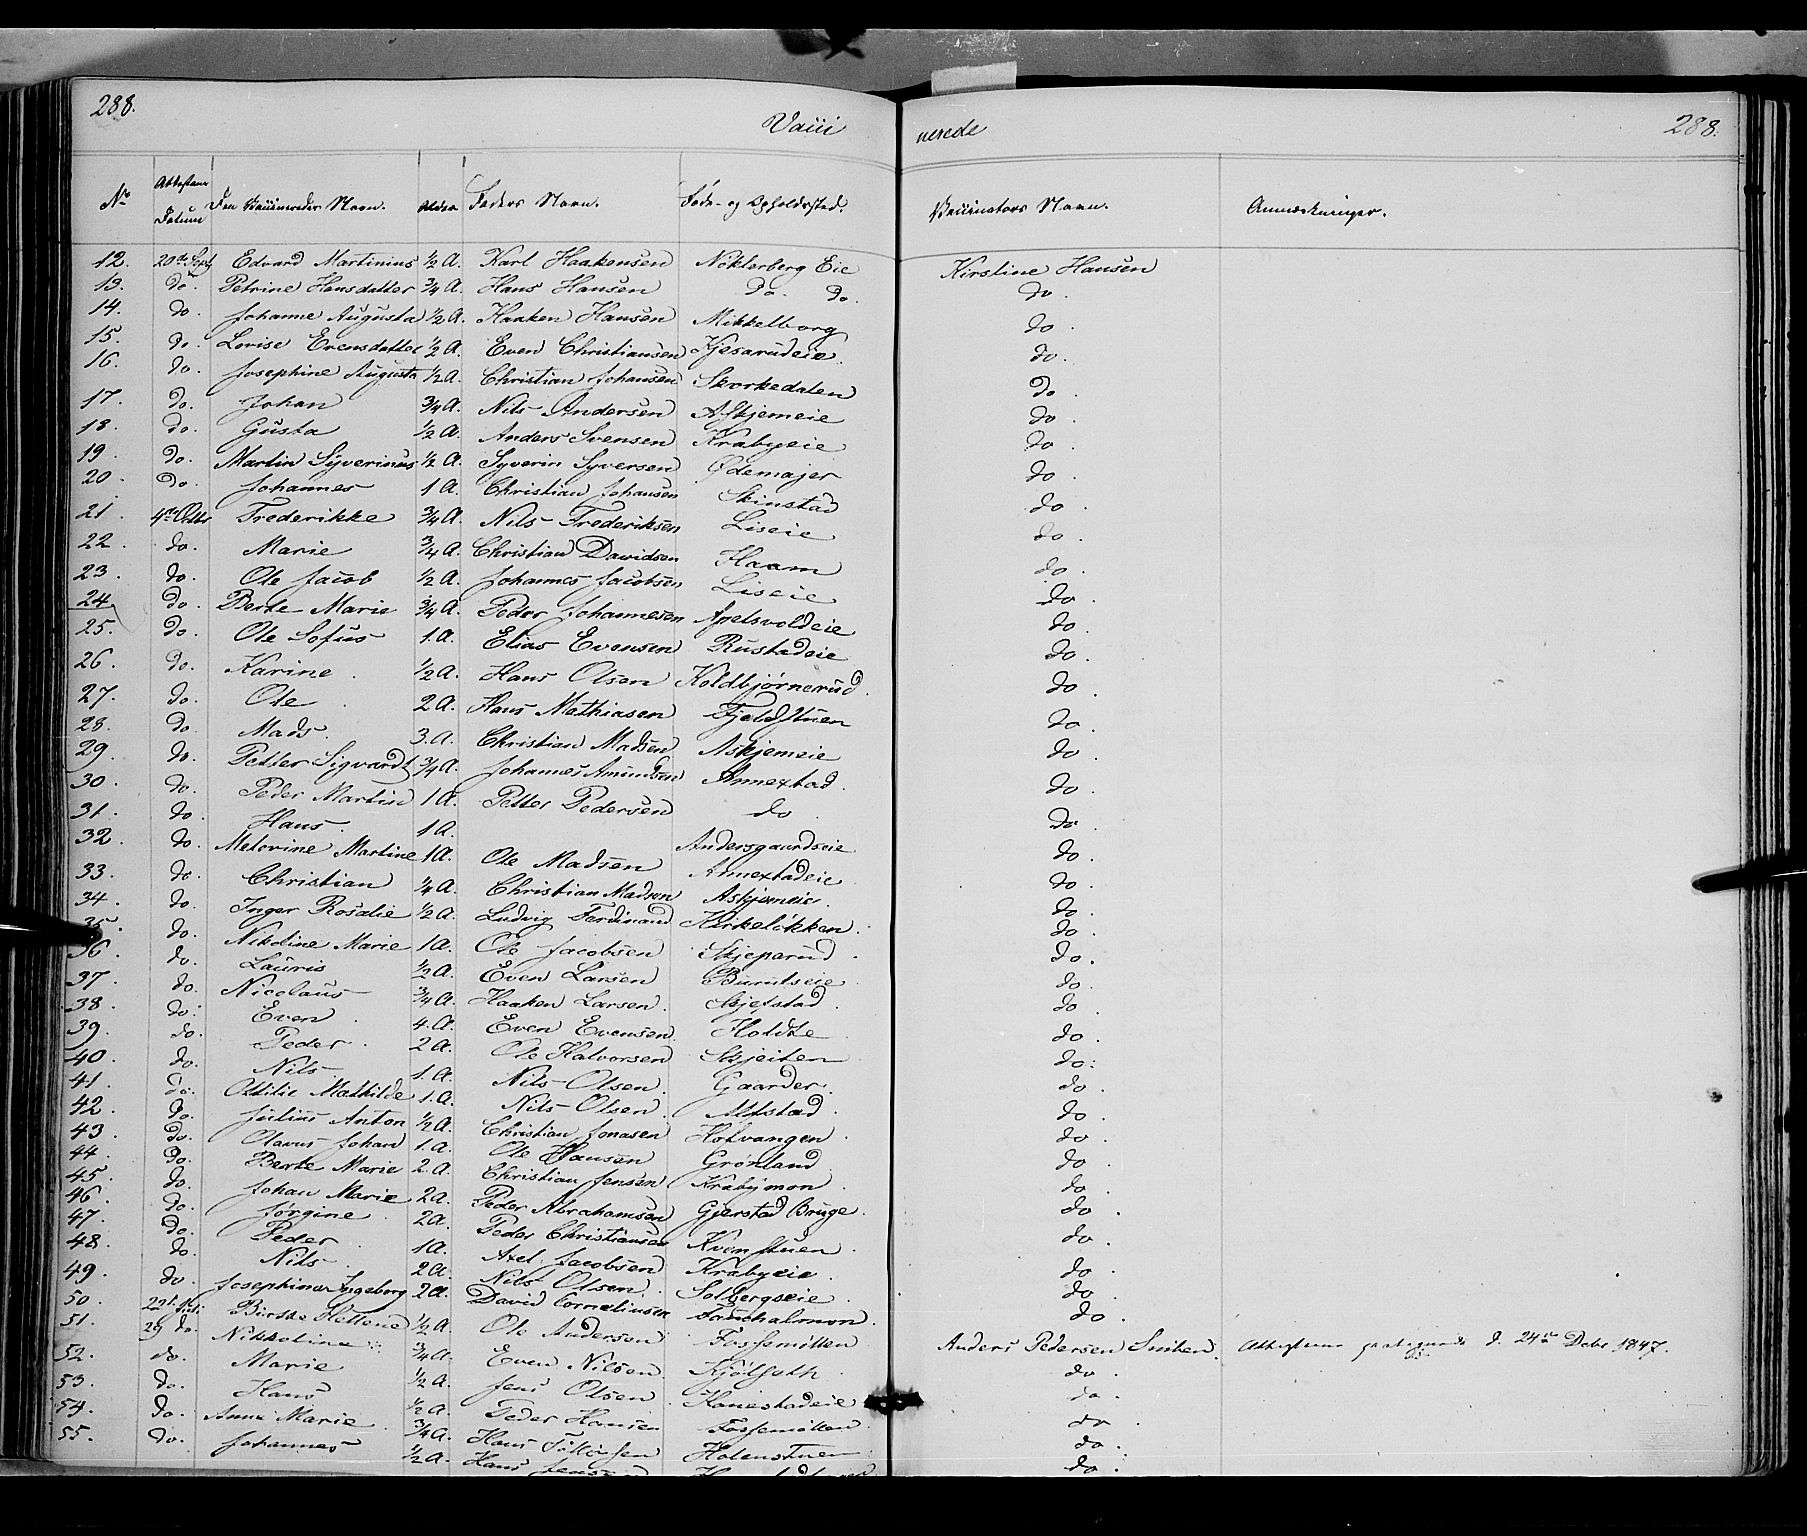 288.
Vacci
nerede
288.
No Attestens Datum Den Vaccineredes Navn. Alder Faders Navn. Føde- og Opholdssted. Vaccinators Navn. Anmærkninger.
12. 20de Sept Edvard Martinius 1/2 A. Karl Haakensen Nøklerberg Eie Kirstine Hansen
13. do. Petrine Hansdatter 3/4 A. Hans Hansen do. do. do.
14. do. Johanne Augusta 1/2 A. Haaken Hansen Mikkelborg do.
15. do. Lovise Evensdatter 1/2 A. Even Christiansen Kjesarudeie do.
16. do. Josephine Augusta 1/2 A. Christian Johansen Skorkedalen do.
17. do. Johan 3/4 A. Nils Andersen Askjemeie do.
18. do. Gusta 1/2 A. Anders Svensen Krabyeie do.
19. do. Martin Syverinus 1/2 A. Syverin Syversen Ødemajer do.
20. do. Johannes 1 A. Christian Johansen Skinstad do.
21. 4de Octbr Frederikke 3/4 A. Nils Frederiksen Liseie do.
22. do. Marie 3/4 A. Christian Davidsen Haam do.
23. do. Ole Jacob 1/2 A. Johannes Jacobsen Liseie do.
24 do. Berte Marie 3/4 A. Peder Johannesen Apelsvoldeie do.
25. do. Ole Sofus 1. A. Elias Evensen Rustadeie do.
26. do. Karine 1/2 A. Hans Olsen Koldbjørnerud do.
27. do. Ole 2 A. Hans Mathiasen Fjeldstuen do.
28. do. Mads 3. A. Christian Madsen Askjemeie do.
29. do. Petter Sigvardt 3/4 A. Johannes Amundsen Annexstad do.
30. do. Peder Martin 1 A. Petter Pedersen do do.
31. do. Hans 1 A. Andersgaardseie do.
32. do. Metovine Martine 1 A. Ole Madsen Annexstadeie do.
33. do. Christian 1/4 A. Christian Madsen Askjemeie do.
34. do. Inger Rosalie 1/2 A. Ludvig Ferdinand Kirkeløkken do.
35. do. Nikoline Marie 1 A. Ole Jacobsen Skjeparud do.
36. do. Lauris 1/2 A. Even Larsen do.
37. do. Nicolaus 3/4 A. Haaken Larsen Skjefstad do.
38. do. Even 4. A. Even Evensen Holdte do.
39. do. Peder 2 A. Ole Halvorsen Skjeiten do.
40. do. Nils 1. A. Nils Olsen Gaarder do.
41. do. Ottilie Mathilde 1. A. Nils Olsen Alfstad do.
42. do. Julius Anton 1/2 A. Christian Jonasen Hofvangen do.
43. do. Olavus Johan 1. A. Ole Hansen Grønland do.
44. do. Berte Marie 2 A. Christian Jensen Krabymon do.
45. do. Johan Marie 2 A. Peder Abrahamsen Gjerstad Bruge do.
46. do. Jørgine 2 A. Peder Christiansen Kvenstuen do.
47. do. Peder 1 A. Axel Jacobsen Krabyeie do.
48. do. Nils 2 A. Nils Olsen Solbergseie do.
49. do. Josephine Ingeborg 2 A. David Corneliusen do.
50. 22de Birthe Hellene 1/2 A. Ole Andersen Fossemøllen Anders Pedersen Attesterne d. 24de Debr 1847.
51. 29 do. Nikkoline 3/4 A. Even Nilsen Kjølseth do.
52. do. Marie 1/2 A. Jens Olsen Hanestadeie do.
53. do. Hans 1/2 A. Peder Hansen Fossemøllen do.
54. do. Anne Marie 3/4 A. Hans Holenstuen do.
55. do. Johannes 1/2 A. Hans Jensen do.